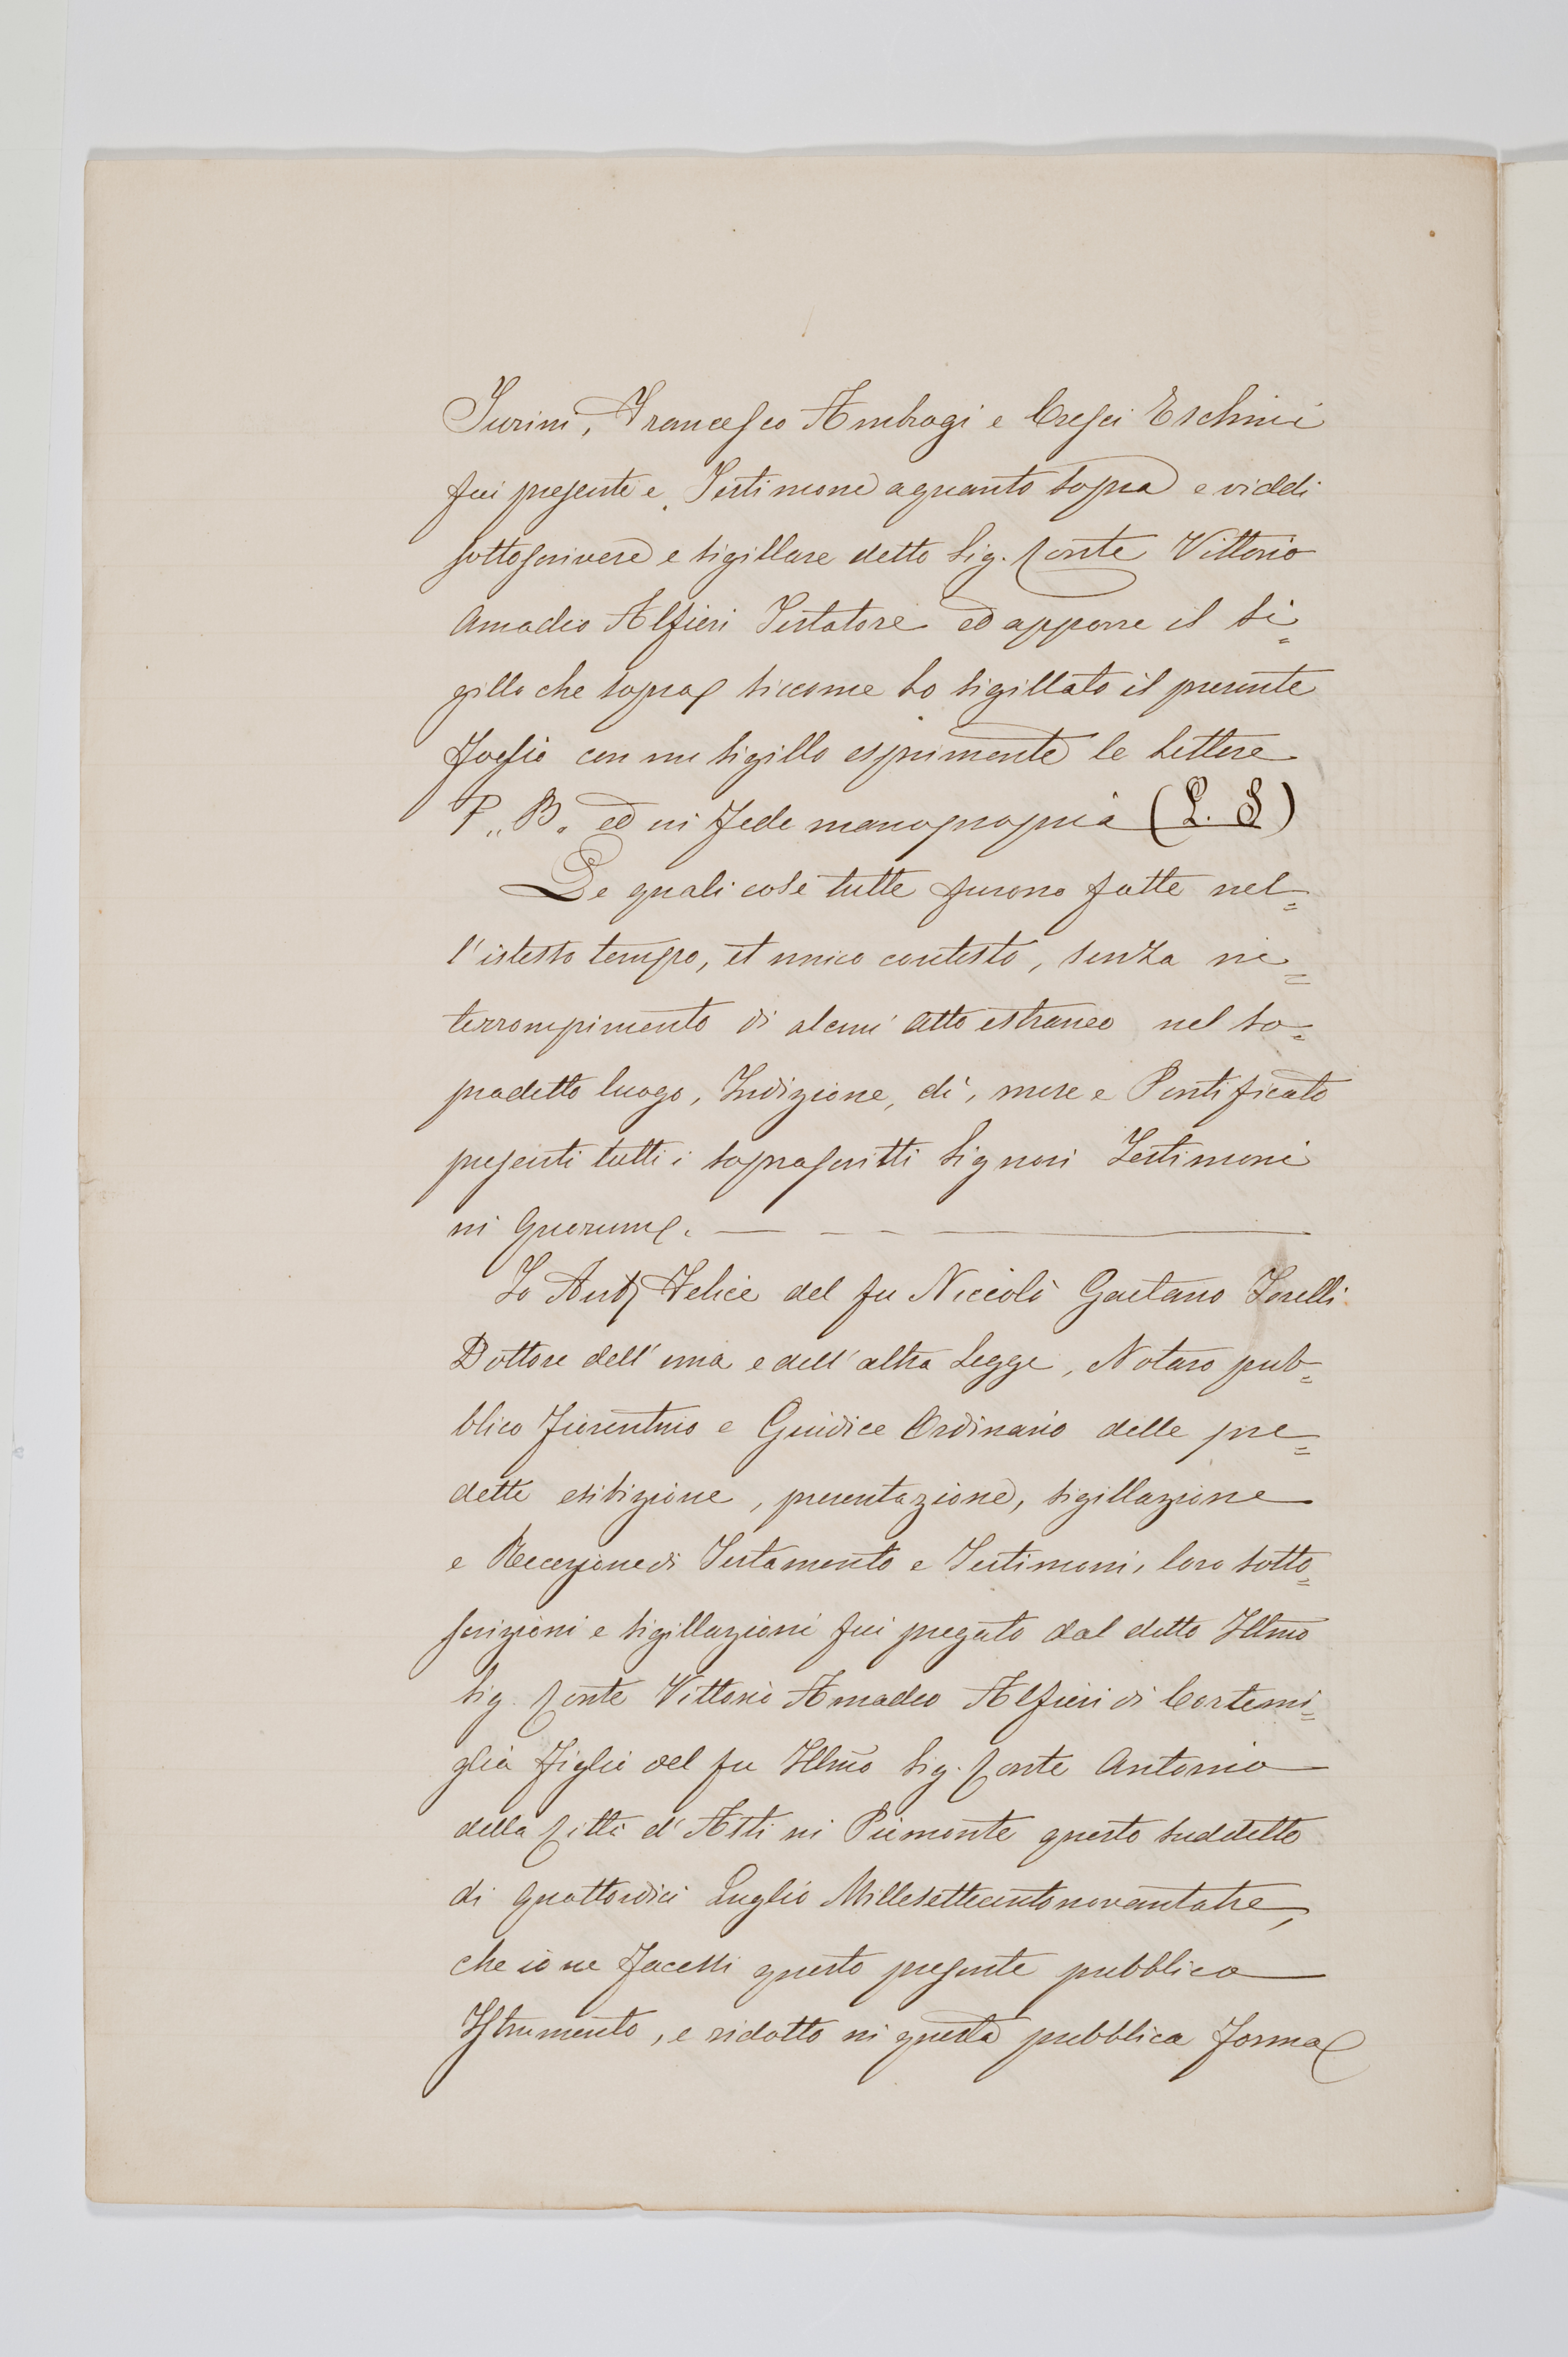 Turini, Francesco Ambrogi e Cresci Eschini
fui presente e Testimone a quanto sopra e viddi
sottoscrivere e sigillare detto Sig. Conte Vittorio
Amadio Alfieri Testatore ed apporre il Si=
gillo che sopra siccome ho sigillato il presente
foglio con un sigillo esprimente le lettere
P,, B. ed in fede manopropria (L. S)
Le quali cose tutte furono fatte nel=
l'istesso tempo, et unico contesto, senza in=
terrompimento di alcun atto estraneo nel so=
pradetto luogo, Indizione, dì, mese e Pontificato
presenti tutti i soprascritti Signori Testimoni
in quorum.
Io Anto Felice del fu Niccolò Gaetano Torelli
Dottore dell'una e dell'altra Legge, Notaro pub=
blico Fiorentino e Giudice Ordinario delle pre=
dette esibizione, presentazione, sigillazione
e Recezione di Testamento e Testimoni, loro sotto=
scrizioni e sigillazioni fui pregato dal detto Illmo
Sig. Conte Vittorio Amadeo Alfieri di Cortemi=
glia figlio del fu Illmo Sig. Conte Antonio
della Città d'Asti in Piemonte questo suddetto
dì quattordici Luglio Millesettecentonovantatre,
che io ne facessi questo presente pubblico
Istrumento, e ridotto in questa pubblica forma